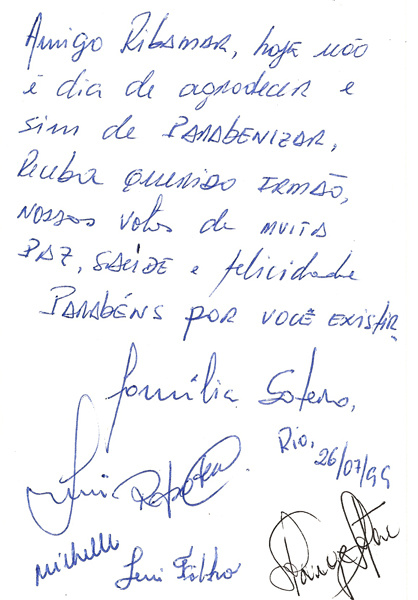 Amigo Ribamar, hoje não
é dia de agradecer e
sim de PARABENIZAR,
Receba querido IRMÃO,
nossos votos de muita
PAZ, SAÚDE e felicidade
Parabéns por você existir
família Sotero,
Rio,
26/07/99
Michelle
Leni Filho